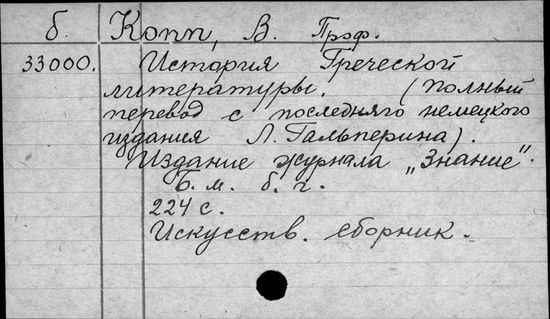 б. Копп, В. Проф.
33000. История Греческой
литературы. (Полный
перевод с последняго немецкого
издания Л. Гальперина).
Издание журнала „Знание".
Б. м. б. г.
224 с.
Искусств. сборник.